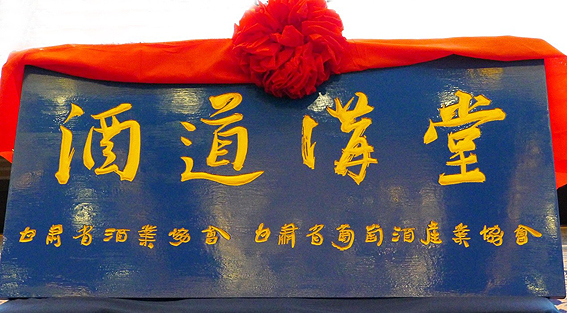 酒道講堂
甘肅省酒業協會 甘肅省葡萄酒産業協會